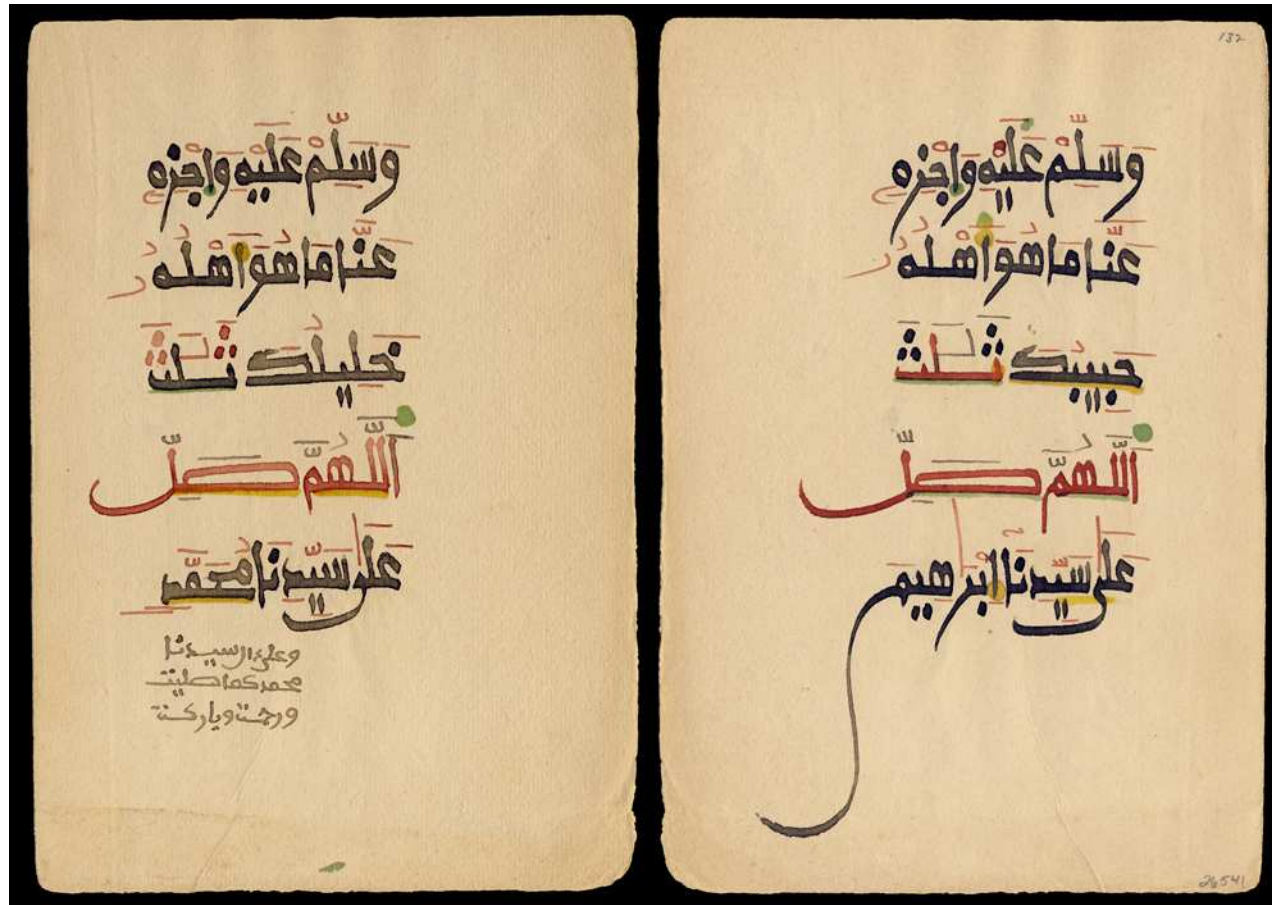 132
وَسَلِّمْ عَلَيْهِ وَاجْزِهِ
عَنَّا مَا هُوَ أَهْلُهُ
حَبِيبِكَ ثَلَث
اَللَّهُمَّ صَلِّ
عَلَى سَيِّدِنَا إِبْرَاهِيم
26541
وَسَلِّمْ عَلَيْهِ وَاجْزِهِ
عَنَّا مَا هُوَ أَهْلُهُ
خَلِيلِكَ ثَلَث
اَللَّهُمَّ صَلِّ
عَلَى سَيِّدِنَا مُحَمَّدٍ
وعلى ءال سيدنا
محمد كما صليت
ورحمت وباركت